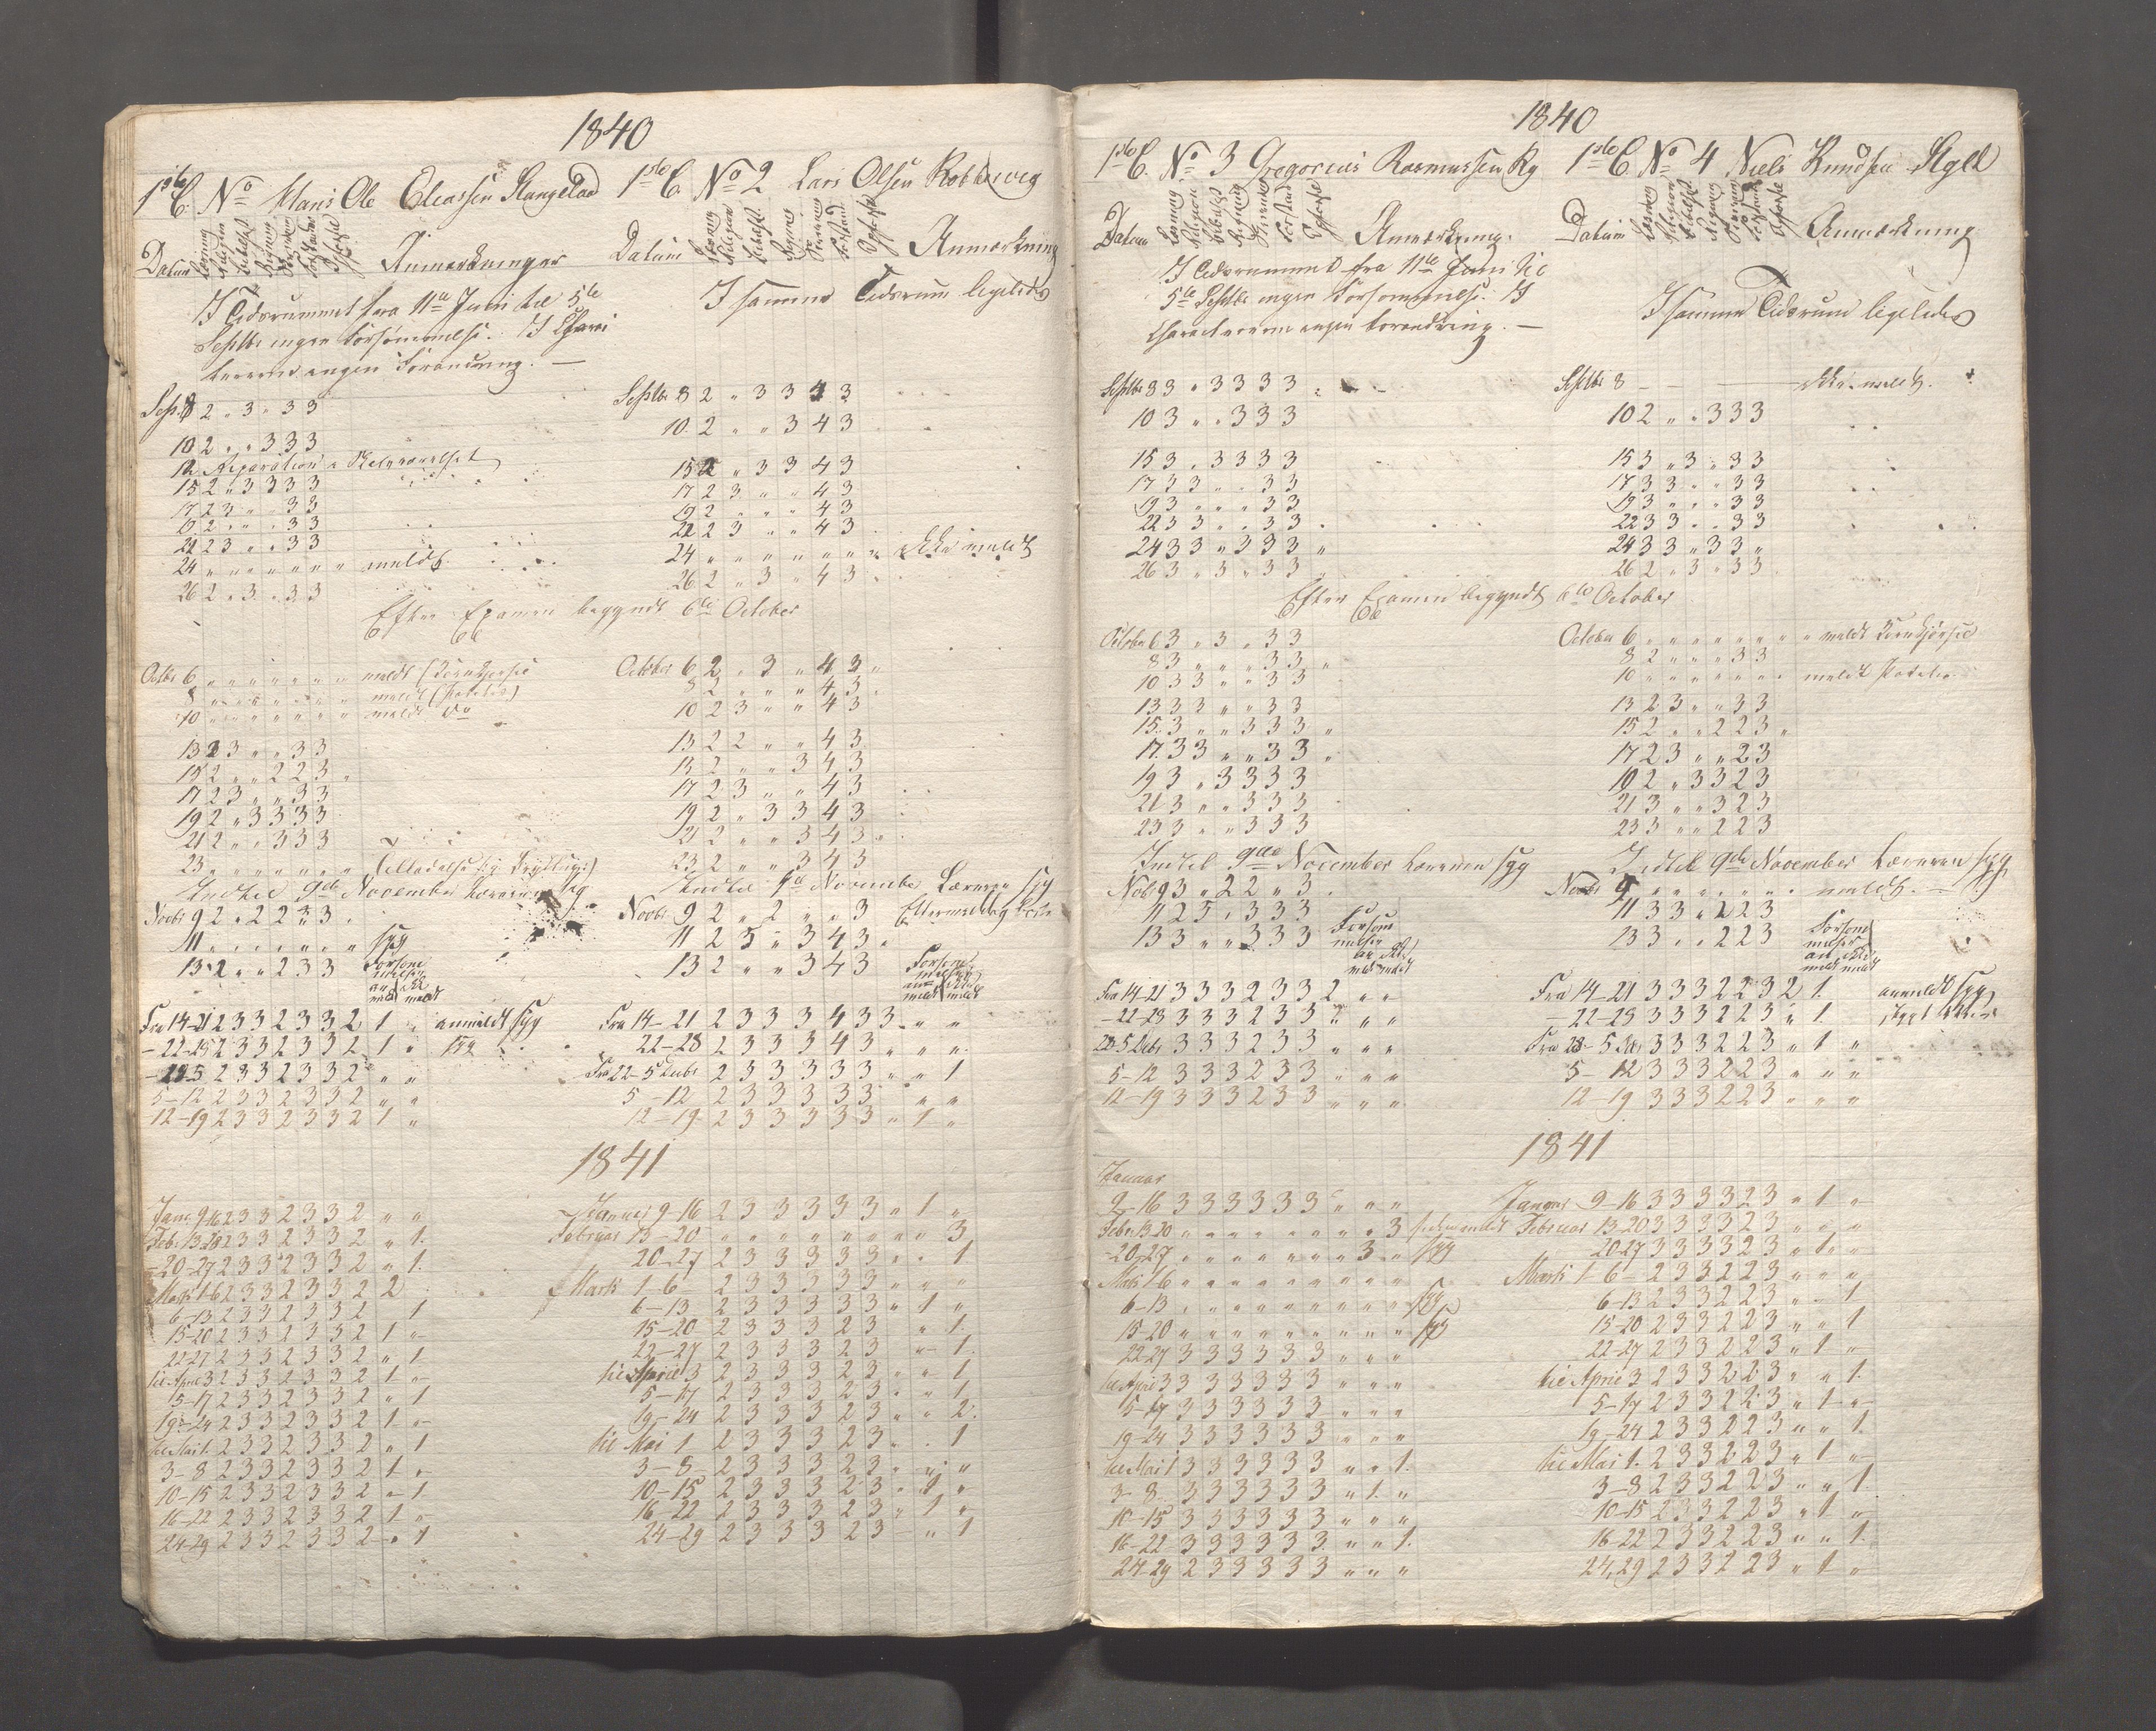 1840
1ste C. No Hans Ole Eliassen Stangeland
Datum Læsning Religion Bibelhist. Regning Skrivning Forstand Opførsel Anmærkninger
I Tidsrummet fra 11te Juni til 5te
Septbr ingen Forsømmelse. I Charac
tererne ingen Forandring. —
Sept. 8 2 " 3 " 3 3
10 2 " " 3 3 3
12 Reparation i Skoleværelset
15 2 " 3 3 3 3
17 2 3 " " 3 3
19 2 " " " 3 3
22 2 3 " " 3 3
24 " " " " " " " meldt
26 2 " 3 " 3 3
Efter Examen begyndt 6te October
Octbr 6 " " " " " " " meldt (Kornkjørsel
8 " " " " " " " meldt (Poteter)
10 " " " " " " " meldt do
13 2 3 " " 3 3
15 2 " " 2 2 3 "
17 2 3 " " 3 3
19 2 " 3 3 3 3
21 2 " " 3 3 3
23 " " " " " " "
Indtil 9de November Læreren syg
Novbr 9 2 " 2 2 3 3
11 " " " " " " " syg
13 2 " " 2 3 3 Forsømmelser anmeldt ikke meldt
Fra 14-21 2 3 3 2 3 3 2 1 " anmeldt syg
- 22-28 2 3 3 2 3 3 2 1 " syg
- 28-5 2 3 3 2 3 3 2 " "
5-12 2 3 3 2 3 3 2 " "
12-19 2 3 3 2 3 3 2 1 "
1ste C. No 2 Lars Olsen
Datum Læsning Religion Bibelhist. Regning Skrivning Forstand Opførsel Anmærkning
I samme Tidsrum ligeledes
Septbr 8 2 " 3 3 4 3
10 2 " " 3 4 3
15 2 " 3 3 4 3
17 2 3 " " 4 3
19 2 " " " 4 3
22 2 3 " " 4 3
24 " " " " " " " ikke meldt
26 2 " 3 " 4 3
October 6 2 " 3 " 4 3 "
8 2 " " " 4 3 "
10 2 3 " " 4 3
13 2 2 " " 4 3
15 2 " " 3 4 3
17 2 3 " " 4 3
19 2 " 3 3 4 3
21 2 " " 3 4 3 "
23 2 " " 3 4 3
Indtil 9de November Læreren syg
Novbr 9 2 " 2 " " 3 Eftermiddag
11 2 3 " 3 4 3 "
13 2 " " 3 4 3 Forsømmelser anmeldt ikke meldt
Fra 14-21 2 3 3 3 4 3 3 " "
22-28 2 3 3 3 4 3 " " "
Fra 22-5 Decbr 2 3 3 3 3 3 " " 1
5-12 2 3 3 3 3 3 " "
12-19 2 3 3 3 3 3 " 1 "
1841
Janr 9-16 2 3 3 2 3 3 2 " "
Febr. 13-20 2 3 3 2 3 3 2 " 1.
- 20-27 2 3 3 2 3 3 2 " 1.
Marts 1-6 2 3 3 2 3 3 2 2
6-13 2 3 3 2 3 3 2 1
15-20 2 3 3 2 3 3 2 1 "
22-27 2 3 3 2 3 3 2 " 1
til April 3 2 3 3 2 3 3 2 1 "
5-17 2 3 3 2 3 3 2 " 1
19-24 2 3 3 2 3 3 2 1 "
til Mai 1. 2 3 3 2 3 3 2 " 1
3-8 2 3 3 2 3 3 2 1 "
10-15 2 3 3 2 3 3 2 " 1
16-22 2 3 3 2 3 3 2 1 "
24-29 2 3 3 2 3 3 2 " 1
Januar 9-16 2 3 3 3 3 3 " 1 "
Februar 13-20 " " " " " " " " 3
20-27 2 3 3 3 3 3 " " 1.
Marts 1-6 2 3 3 3 3 3 " " "
6-13 2 3 3 3 3 3 " 1 "
15-20 2 3 3 3 2 3 " 1.
22-27 2 3 3 3 2 3 " 1.
til April 3 2 3 3 3 2 3 " " 1
5-17 2 3 3 3 2 3 " " 1
19-24 2 3 3 3 2 3 " " 2.
til Mai 1 2 3 3 3 2 3 " . 1
3-8 2 3 3 3 2 3 " " "
10-15 2 3 3 3 2 3 " 1 "
16-22 2 3 3 3 2 3 " 1 "
24-29 2 3 3 3 2 3 " 1
1840
1ste C. No 3 Gregorius Rasmussen Ry
Datum Læsning Religion Bibelhist. Regning Skrivning Forstand Opførsel Anmærkning.
I Tidsrummet fra 11te Juni til
5te Septbr ingen Forsømmelse. I
Characterererne ingen Forandring. —
Septbr 8 3 " 3 3 3 3
10 3 " " 3 3 3
15 3 " 3 3 3 3
17 3 3 " " 3 3
19 3 " " " 3 3
22 3 3 " " 3 3
24 3 3 " 3 3 3 "
26 3 " 3 " 3 3
Efter Examen begyndt 6te October
October 6 3 " 3 " 3 3
8 3 " " " 3 3 "
10 3 3 " " 3 3
13 3 3 " " 3 3
15. 3 " " 3 3 3 "
17. 3 3 " " 3 3 "
19 3 " 3 3 3 3
21 3 " " 3 3 3
23 3 " " 3 3 3
Indtil 9de November Læreren syg
Nov 9 3 " 2 2 " 3
11 2 3 " 3 3 3
13 3 " " 3 3 3 Forsømmelser anmeldt ikke meldt
Fra 14-21 3 3 3 2 3 3 2 " "
- 22-28 3 3 3 2 3 3 " " "
28-5 Decbr 3 3 3 2 3 3 " " "
5-12 3 3 3 2 3 3 " " "
12-19 3 3 3 2 3 3 " " "
1ste C. No 4 Niels Knudsen
Datum Læsning Religion Bibelhist. Regning Skrivning Forstand Opførsel Anmærkning
I samme Tidsrum ligeledes
Septbr 8 — — ikke meldt.
10 2 " " 3 3 3
15 3 " 3 " 3 3
17 3 3 " " 3 3
19 3 " " " 3 3
22 3 3 " " 3 3
24 3 3 " 3 3 "
26 2 " 3 " 3 3
October 6 " " " " " " " meldt Kornkjørsel
8 2 " " " 3 3
10 " " " " " " " meldt Poteter
13 2 3 " " 3 3
15 2 " " 2 2 3 "
17 2 3 " " 2 3
19 2 " 3 3 2 3
21 3 " " 3 2 3
23 3 " " 2 2 3
Indtil 9de November Læreren syg
Novbr 9 " " " " " " " meldt. —
11 3 3 " 2 2 3
13 3 " " 2 2 3 Forsømmelser anmeldt ikke meldt
Fra 14-21 3 3 3 2 2 3 2 1. anmeldt syg
- 22-28 3 3 3 2 2 3 " 1
Fra 28-5 Decbr 3 3 3 2 2 3 " 1 "
5-12 3 3 3 2 2 3 " " "
12-19 3 3 3 2 2 3 " " "
1841
Januar
9-16 3 3 3 3 3 3 " " "
Febr 13-20 " " " " " " " " 3
-20-27 " " " " " " " 3 " syg
Marts 1-6 " " " " " " " " "
6-13 " " " " " " " " " syg
15-20 " " " " " " " " " syg
22-27 3 3 3 3 3 3 " " "
til April 3 3 3 3 3 3 3 " " "
5-17 3 3 3 3 3 3 " " "
19-24 3 3 3 3 3 3 " " "
til Mai 1 3 3 3 3 3 3 " " 1.
3-8 3 3 3 3 3 3 " 1. "
10-15 3 3 3 3 3 3 " " "
16-22 3 3 3 3 3 3 " " 1.
24-29 2 3 3 3 3 3 " " "
Januar 9-16 3 3 3 3 2 3 " 1 "
Februar 13-20 3 3 3 3 2 3 " " "
20-27 3 3 3 3 2 3 " 1 "
Marts 1-6 2 3 3 2 2 3 " " "
6-13 2 3 3 2 2 3 " 1
15-20 2 3 3 2 2 3 " " 1
22-27 2 3 3 2 2 3 " 1 "
til April 3 2 3 3 2 2 3 " " 1.
5-17 2 3 3 2 2 3 " 1 "
19-24 2 3 3 2 2 3 " " 1.
til Mai 1. 2 3 3 2 2 3 " 1 "
3-8 2 3 3 2 2 3 " " 1.
10-15 2 3 3 2 2 3 " 1 "
16-22 2 3 3 2 2 3 " " 1.
24-29 2 3 3 2 2 3 " 1 "